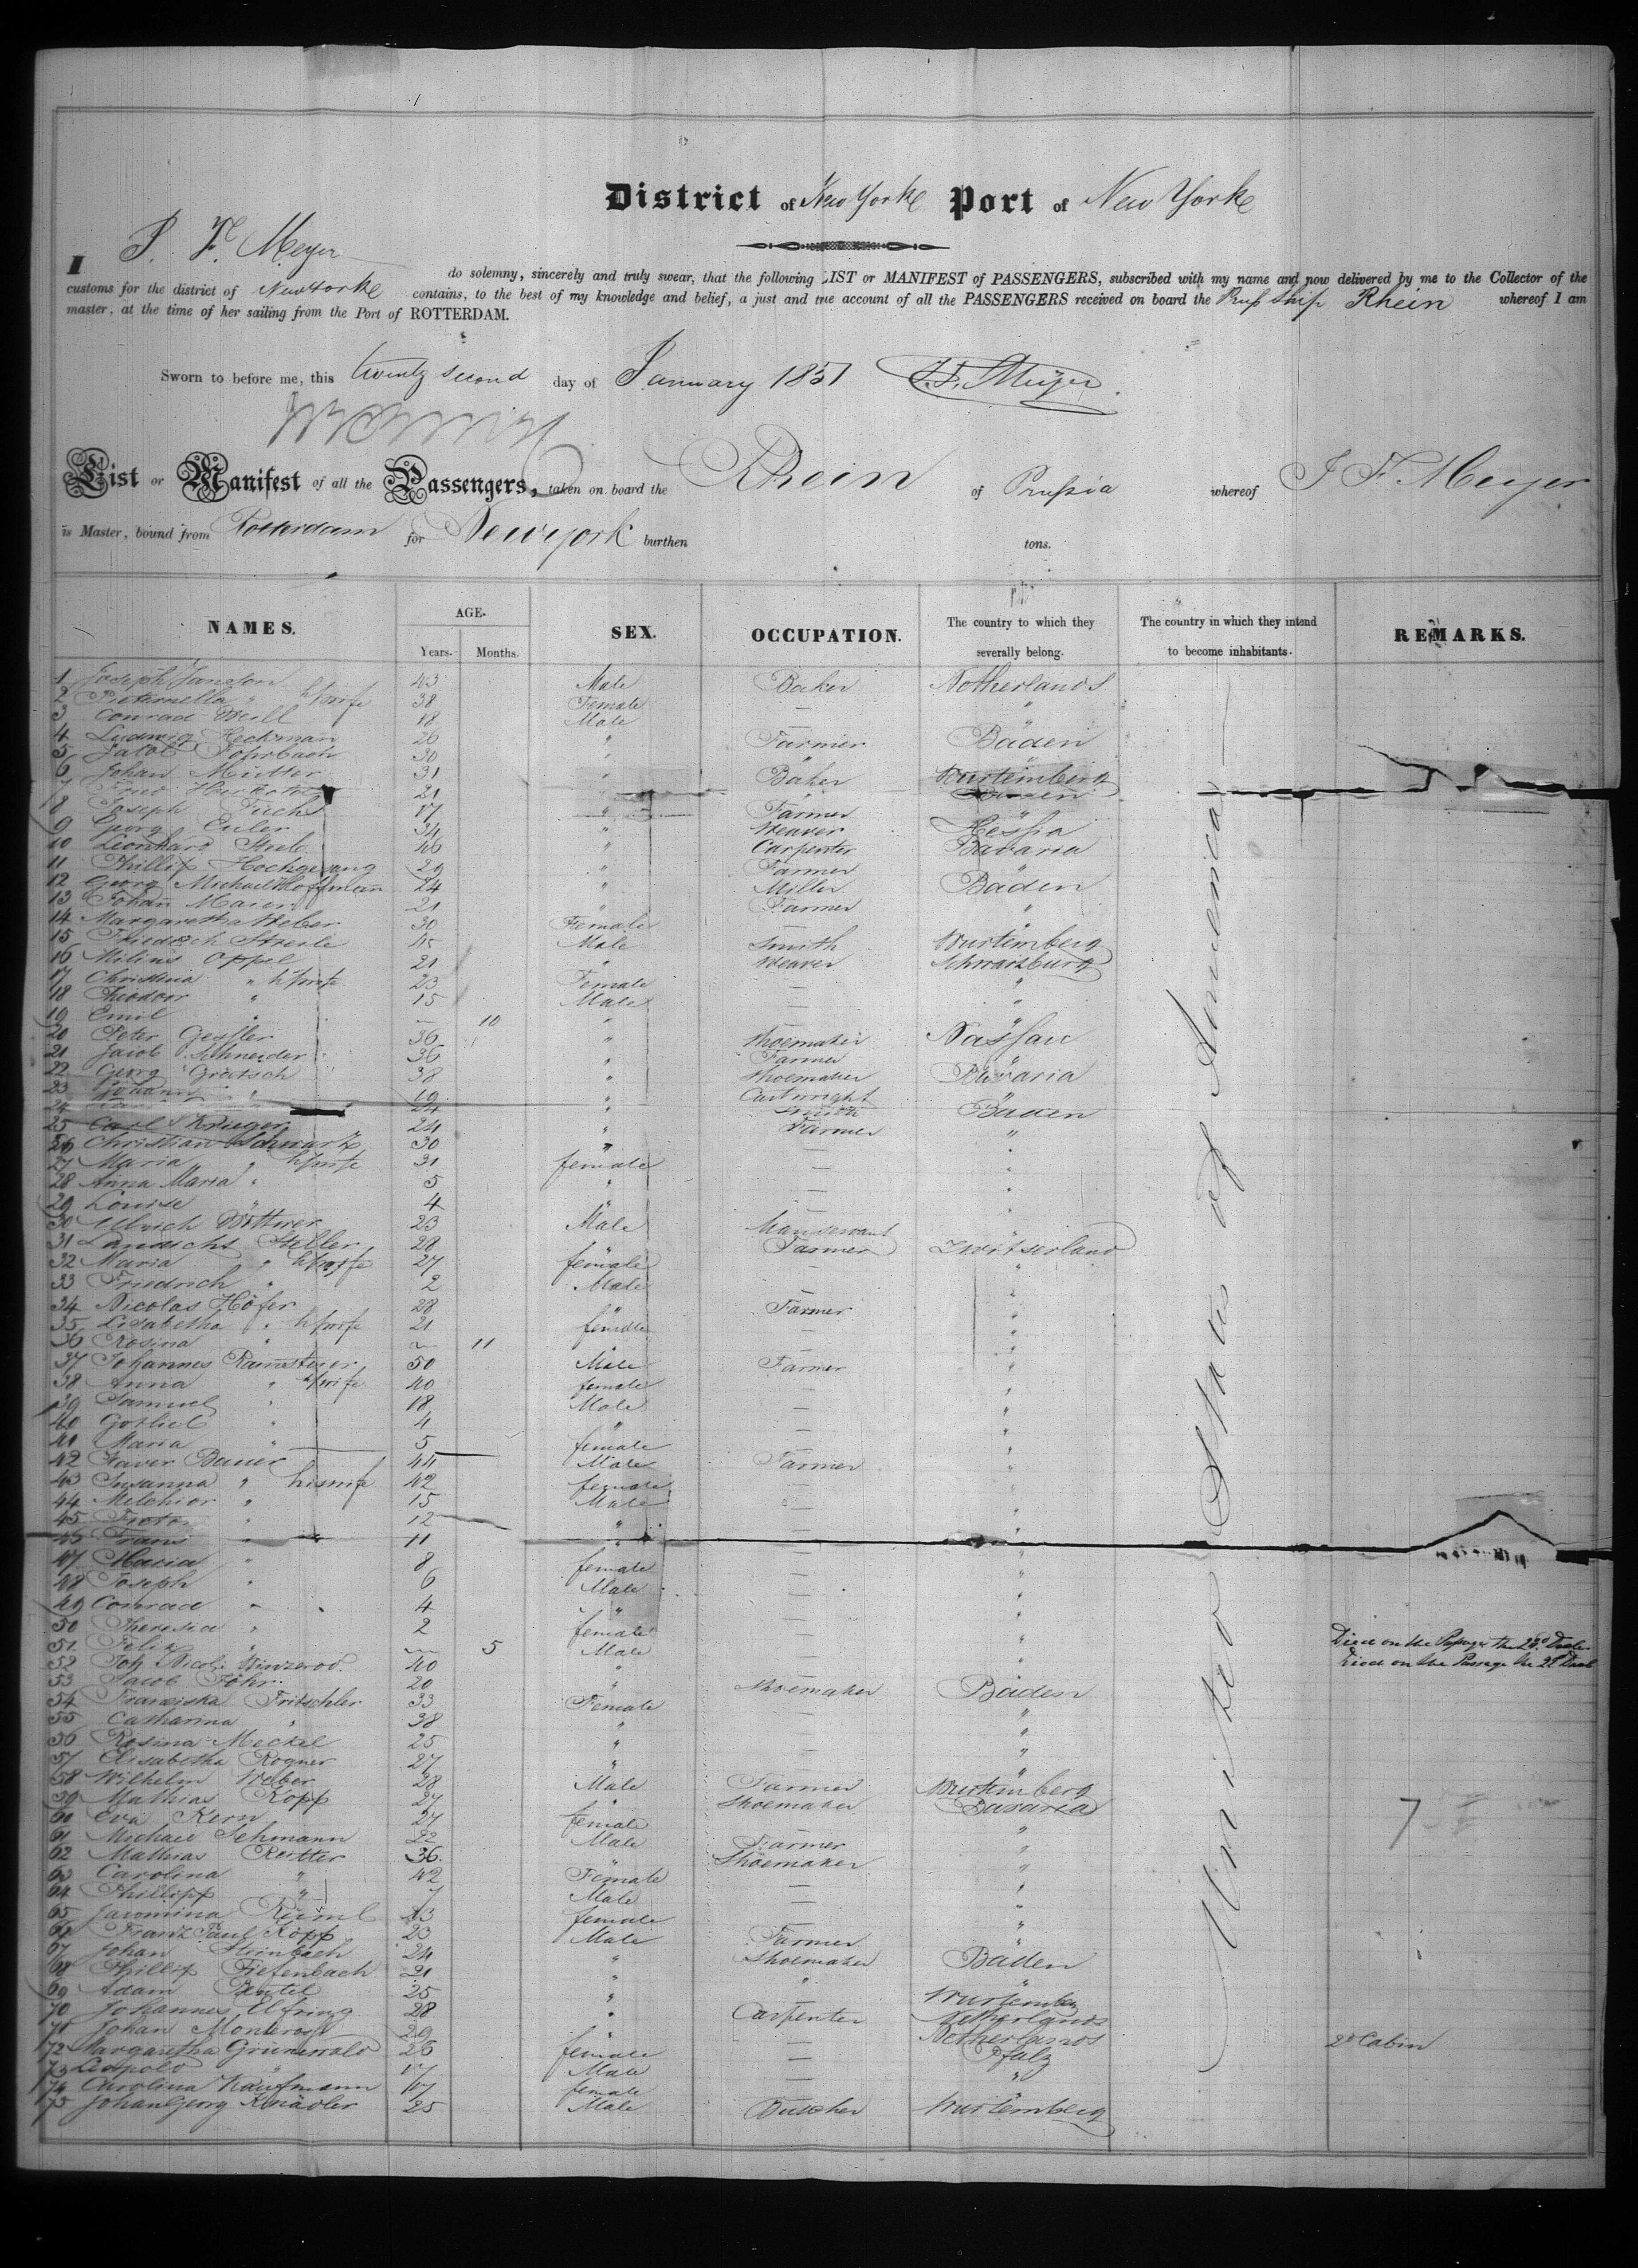 District of New Yorke Port of New Yorke
I J. F. Meyer do solemny, sincerely and truly swear, that the following LIST or MANIFEST of PASSENGERS, subscribed with my name and now delivered by me to the Collector of the
customs for the district of New Yorke contains, to the best of my knowledge and belief, a just and true account of all the PASSENGERS received on board the Pruss Ship Rhein whereof I am
master, at the time of her sailing from the Port of ROTTERDAM.
Sworn to before me, this twenty second day of January 1851 J. F. Meyer
List or Manifest of all the Passengers, taken on board the Rhein of Prussia whereof J F. Meyer
is Master, bound from Rotterdam for New york burthen tons.
NAMES. AGE. Years. Months. SEX. OCCUPATION. The country to which they severally belong. The country in which they intend to become inhabitants. REMARKS.
United States of America
1 Joseph Jansen 43 Male Baker Netherlands
2 Pieternella " h/wife 38 Female — "
3 Conrad Weill 18 Male —
4 Ludwig Heckman 26 " Farmer Baden
5 Jacob Fohrbach 30 " "
6 Johan Mutter 31 " Baker Wurtemberg
7 21 " Baden
8 Joseph Fuchs 17 " Farmer "
9 Georg Euler 34 " Weaver Hessia
10 Leonhard Streb 46 " Carpenter Bavaria
11 Phillip Hochgesang 29 " Farmer "
12 Georg Michael Hoffman 24 " Miller Baden
13 Johan Maier 21 " Farmer "
14 Margaretha Weber 30 Female — "
15 Friedrich Streile 45 Male Smith Wurtemberg
16 Oppel 21 " Weaver Schwarzburg
17 Christina " h/wife 23 Female — "
18 Theodoor " 15 Male — "
19 Emil " — 10 " — "
20 Peter Gessler 36 " Shoemaker Nassau
21 Jacob Schneider 36 " Farmer "
22 Georg Gratsch 38 " Shoemaker Bavaria
23 Johann " 19 " Cartwright "
24 24 " Smith Baden
25 Carl Krieger 24 " Farmer "
26 Christian Schwartz 30 " — "
27 Maria " h/wife 31 female — "
28 Anna Maria " 5 " — "
29 Louise " 4 " — "
30 Ulrich Wittwer 23 Male Manservant "
31 Steller 28 " Farmer Zwitserland
32 Maria " h/wife 27 female — "
33 Friedrich " 2 Male — "
34 Nicolas Höfer 28 " Farmer "
35 Lisabetha " h/wife 21 female — "
36 Rosina " — 11 " — "
37 Johannes Ramsteier 50 Male Farmer "
38 Anna " h/wife 40 female — "
39 Samuel " 18 Male — "
40 Gotlieb " 4 " — "
41 Maria " 5 female — "
42 Xaver Bauer 44 Male Farmer "
43 Susanna " his wife 42 female — "
44 Melchior " 15 Male — "
45 " 12 " — "
46 Frans " 11 " — "
47 Maria " 8 female — "
48 Joseph " 6 Male — "
49 Conrad " 4 " — "
50 Theresia " 2 female — "
51 Felix " — 5 Male — " Died on the Passage the 23d Decbr
52 Joh Nicol: Winzerod 40 " — " Died on the Passage the 28 Decb
53 Jacob Föhr 20 " Shoemaker Baden
54 Franziska Fritschler 33 Female — "
55 Catharina " 38 " — "
56 Rosina Meckel 25 " — "
57 Elisabetha Rogner 27 " — "
58 Wilhelm Weber 28 Male Farmer Wurtemberg
59 Mathias Kopp 27 " Shoemaker Bavaria
60 Eva Kern 27 female — "
61 Michael Lehmann 22 Male Farmer "
62 Mathias Reitter 36 " Shoemaker "
63 Carolina " 42 Female — "
64 Phillipp " 7 Male — "
65 13 female — "
66 Franz Paul Kopp 23 Male Farmer "
67 Johan Steinbach 24 " Shoemaker Baden
68 Phillip Tiefenbach 21 " " "
69 Adam Beutel 25 " Wurtemberg
70 Johannes Elfring 28 " Carpenter Netherlands
71 Johan 29 " Netherlands 2d Cabin
72 Margaretha Grunewald 26 female — Pfalz
73 Leopold " 17 Male — "
74 Carolina Kaufmann 17 female — "
75 Johan Georg Knädler 25 Male Wurtemberg